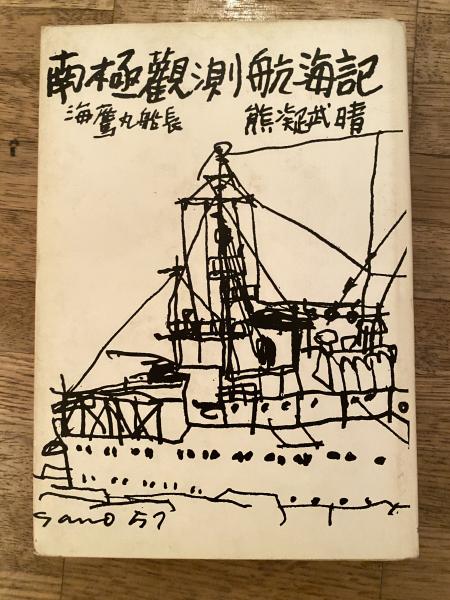 南極觀測航海記
海鷹丸船長 熊凝武晴
sano 57